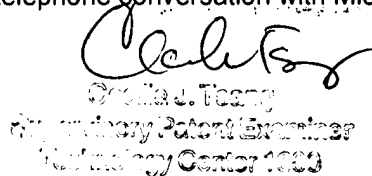 telephone conversation with
Cecilia J. Tsang
Supervisory Patent Examiner
Technology Center 1600